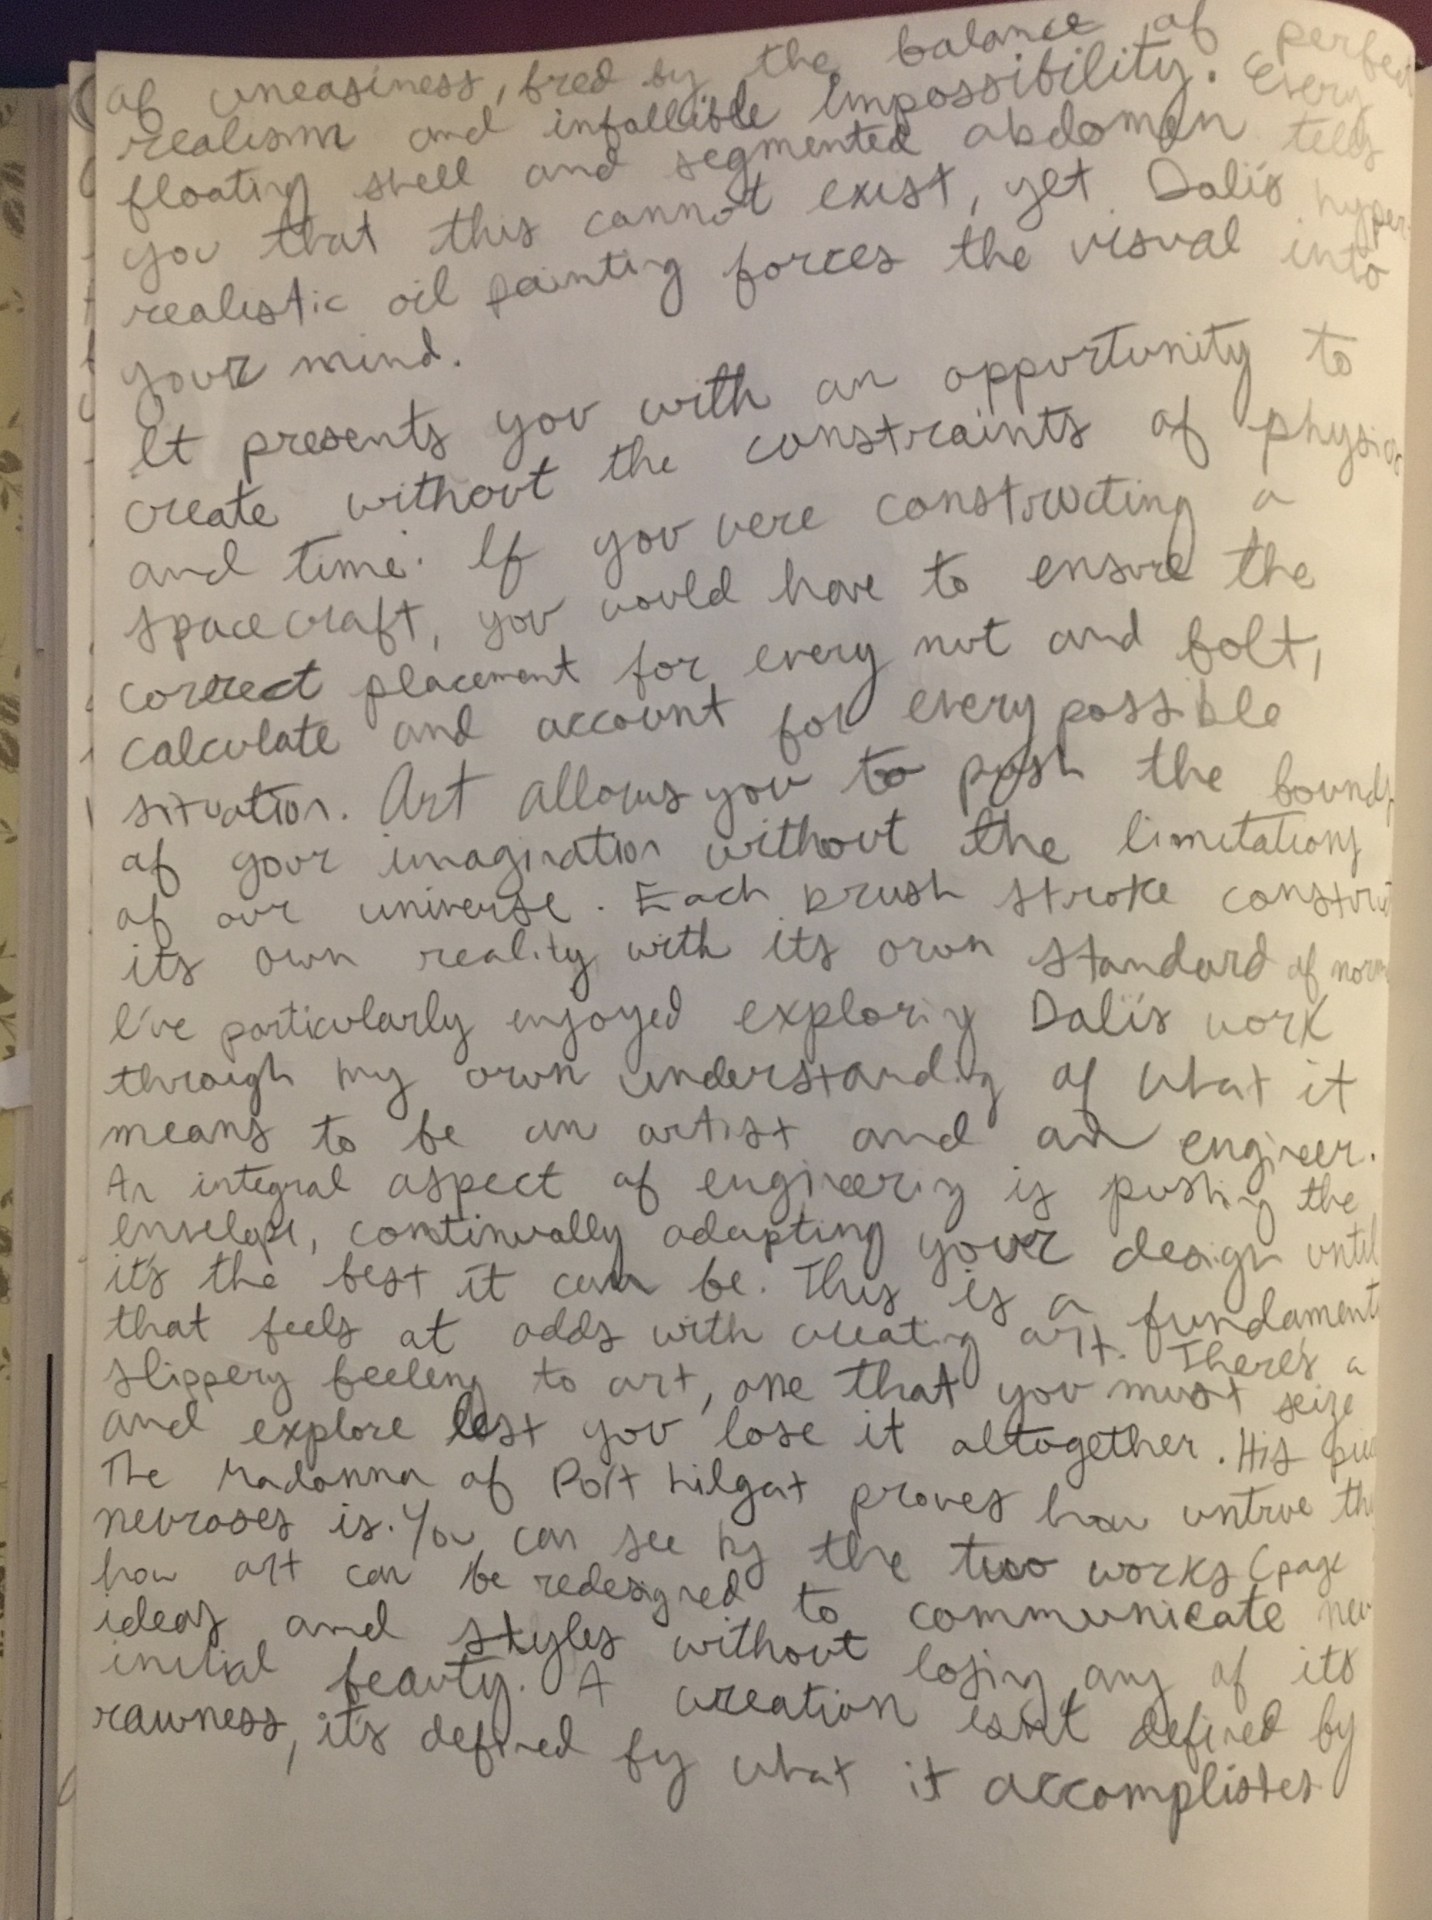 of uneasiness, bred by the balance of perfect
realism and infallible impossibility. Every
floating shell and segmented abdomen tells
you that this cannot exist, yet Dalí's hyper-
realistic oil painting forces the visual into
your mind.
It presents you with an opportunity to
create without the constraints of physics
and time. If you were constructing a
spacecraft, you would have to ensure the
correct placement for every nut and bolt,
calculate and account for every possible
situation. Art allows you to push the bounds
of your imagination without the limitations
of our universe. Each brush stroke constru
its own reality with its own standard of norm
I've particularly enjoyed exploring Dalí's work
through my own understanding of what it
means to be an artist and an engineer.
An integral aspect of engineering is pushing the
envelope, continually adapting your design until
it's the best it can be. This is a fundament
that feels at odds with creating art. There's a
slippery feeling to art, one that you must seize
and explore lest you lose it altogether. His pie
The Madonna of Port Lligat proves how untrue th
neuroses is. You can see by the two works (page
how art can be redesigned to communicate new
ideas and styles without losing any of its
initial beauty. A creation isn't defined by
rawness, it's defined by what it accomplishes